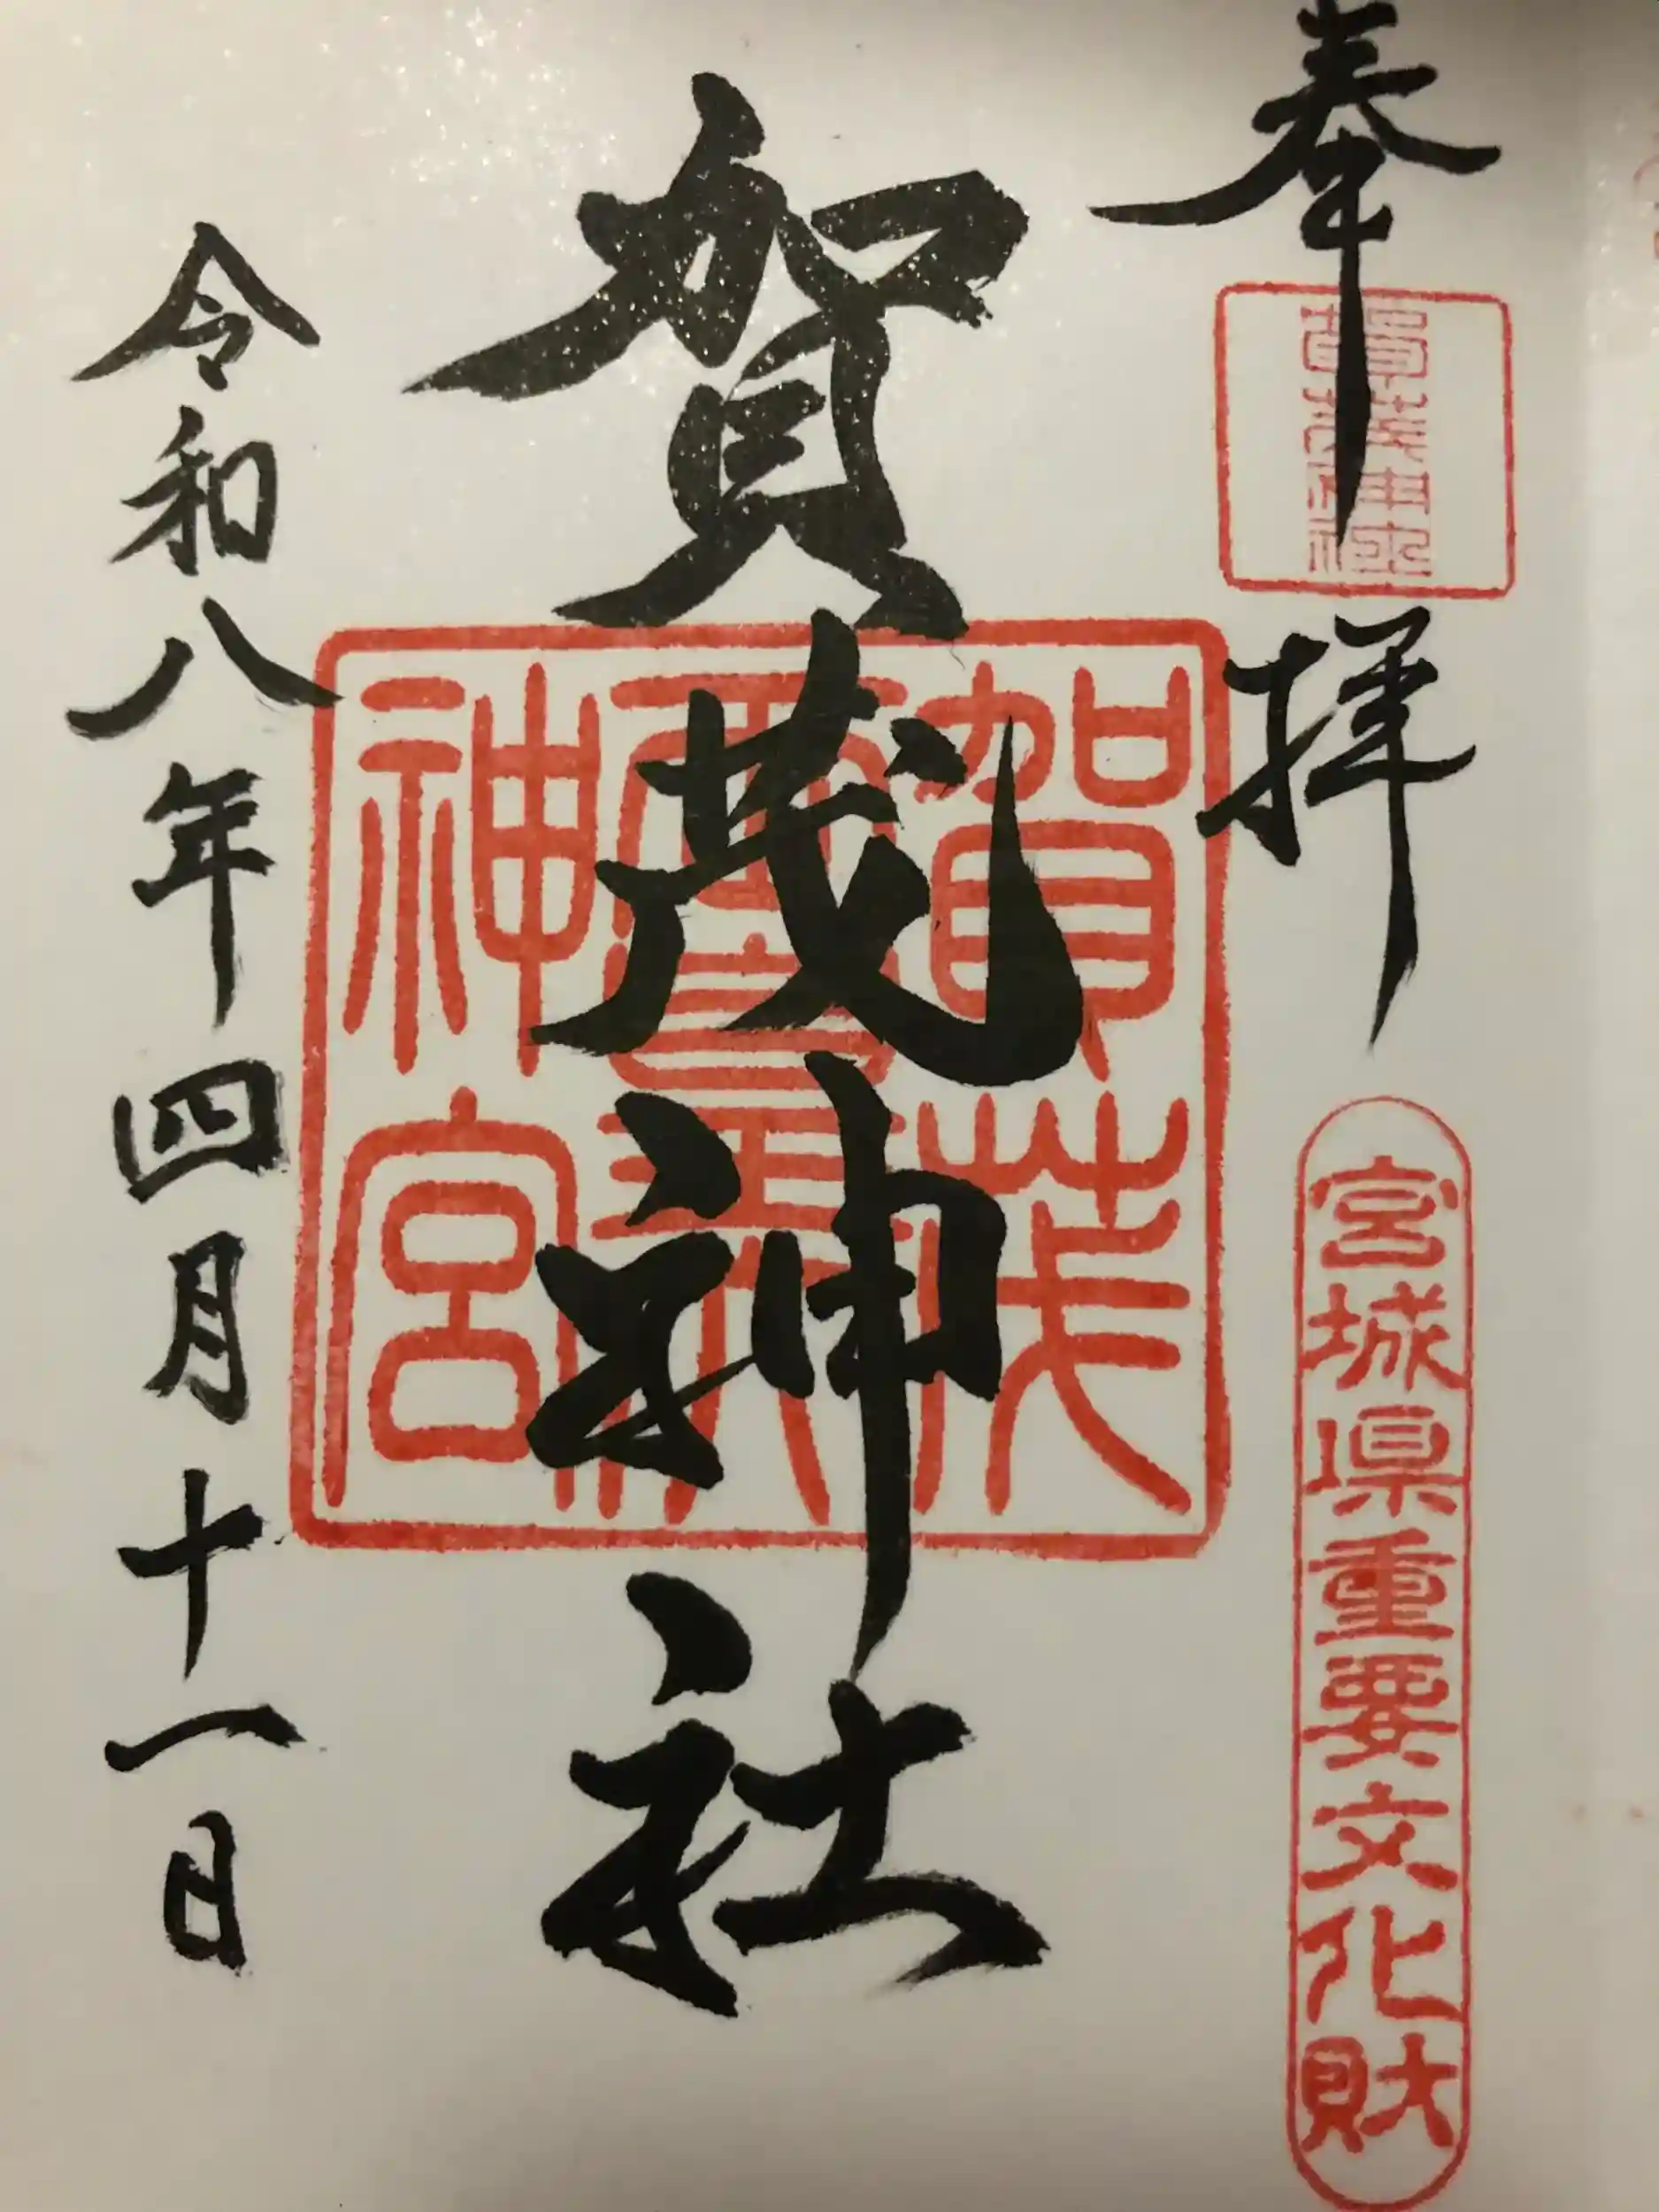 奉拝
宮城県重要文化財
賀茂神社
賀茂
神宮
令和八年四月十一日